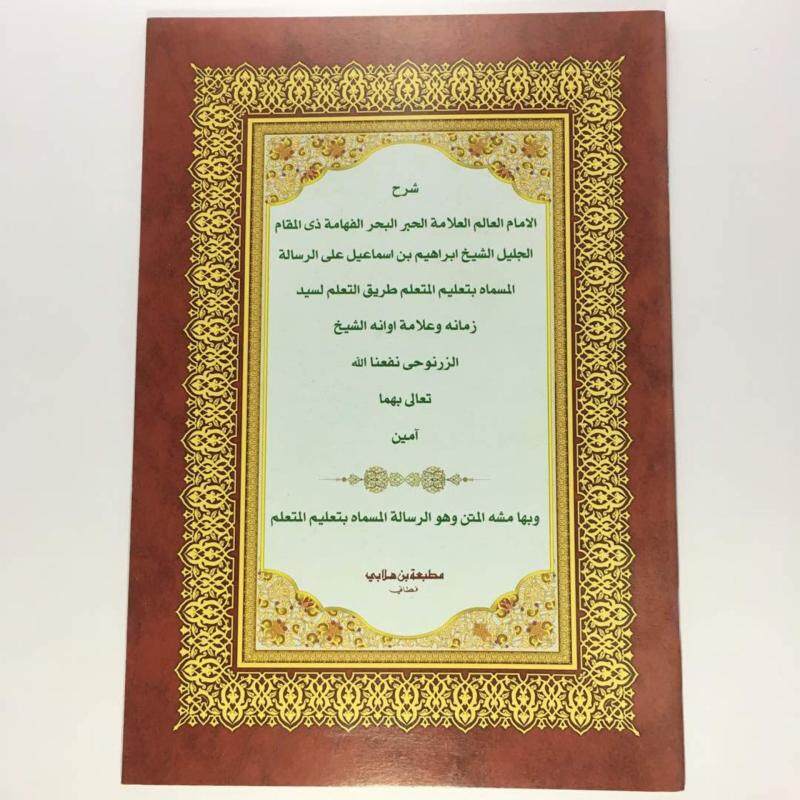 شرح
الامام العالم العلامة الحبر البحر الفهامة ذى المقام
الجليل الشيخ ابراهيم بن اسماعيل على الرسالة
المسماه بتعليم المتعلم طريق التعلم لسيد
زمانه وعلامة اوانه الشيخ
الزرنوحى نفعنا الله
تعالى بهما
آمين
وبها مشه المتن وهو الرسالة المسماه بتعليم المتعلم
مطبعة بن هلابي
فطاني